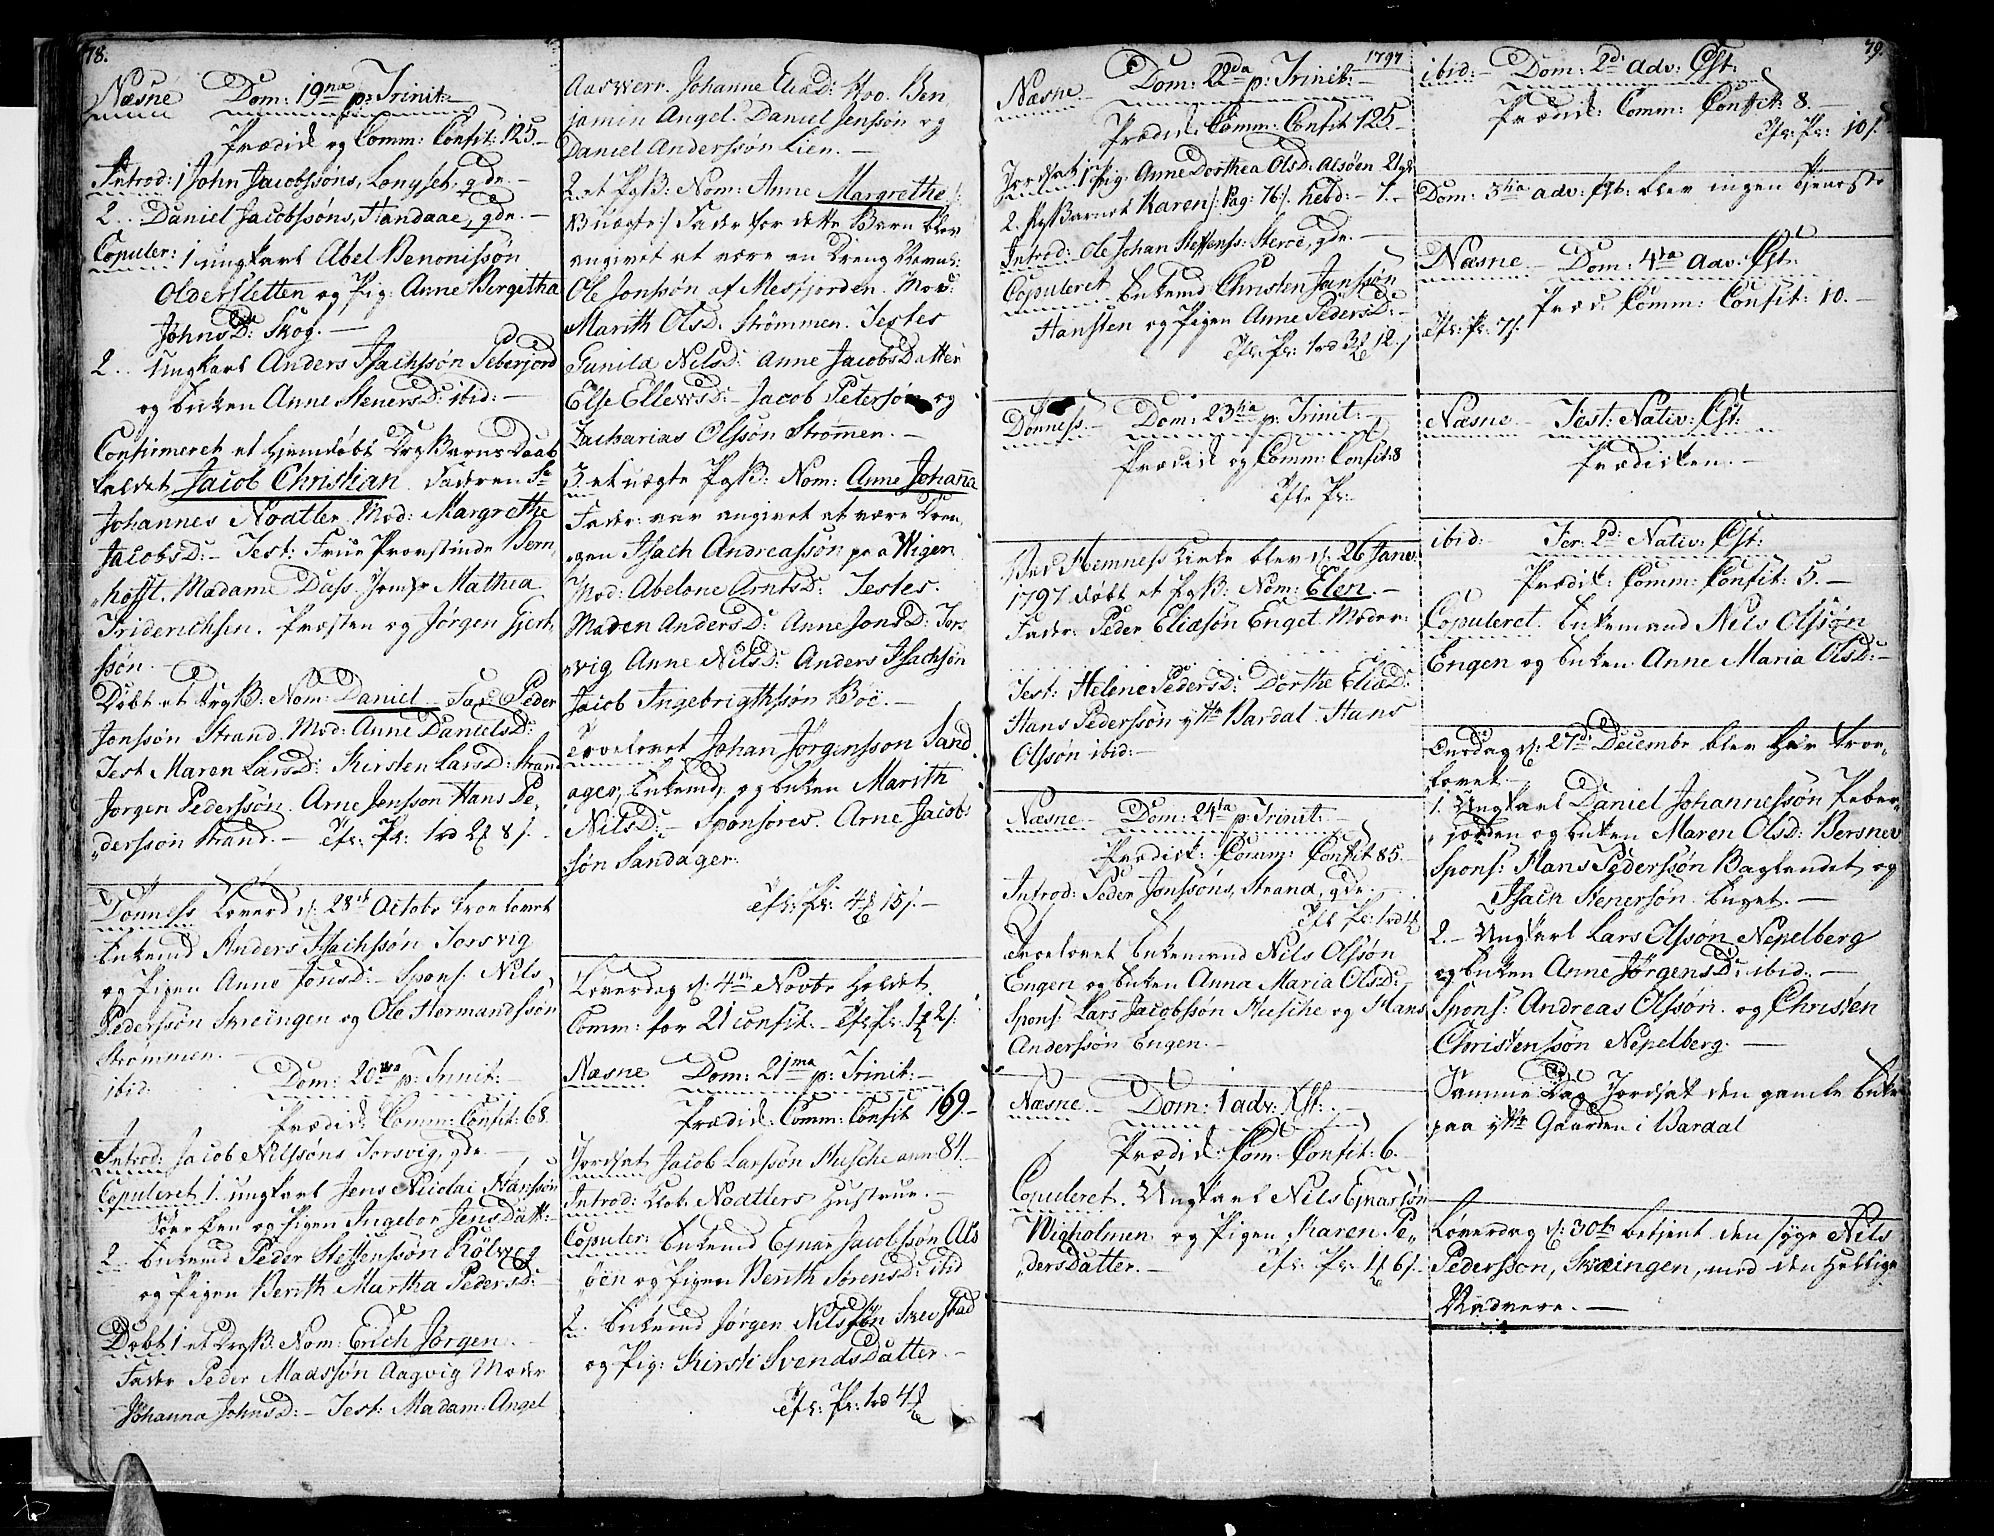 78.
Næsne Dom: 19na p: Trinit:
Prædik og Comm: Confit: 125.
Introd: 1 John Jacobssøns, Lonyset, gde.
2.. Daniel Jacobssøns, Handaae, gde.
Copuler: 1 ungkarl Abel Benonissøn
Oldersletten og Pig: Anne Bergitha
JohnsD: Skog.
2.. Ungkarl Anders Isachssøn Seberjord
og Enken Anne StenersD: ibid:
Confirmeret et hjemdøbt DrgBarns Daab
kaldet Jacob Christian. Faderen Sr
Johannes Nodtler Mod: Margrethe
JacobsD: Test: Frue Provstinde Bern,
hofft. Madame Dass. Jomfr Mathea
Friderichsen. Præsten og Jørgen Gjert,
søn.
Døbt et DrgB: Nom: Daniel Fad: Peder
Jonssøn Strand. Mod: Anne DanielsD:
Test Maren LarsD: Kirsten LarsD: Strand
Jørgen Pederssøn. Arne Jonsson Hans Pe,
dersson Strand.
Dønness Løverd d: 28de Octobr Troelovet
Enkemd Anders Isachssøn Torsvig
og Pigen Anne JonsD: Spons: Nils
Pedersson Skreingen og Ole Hermandssøn
Strømmen.
ibid: Dom: 20ma p: Trinit:
Prædik: Comm: Confit: 68.
Introd: Jacob Nilssøns Torsvig, gde.
Copuleret 1. ungkarl Jens Nicolai Hanssøn
og Pigen Ingebor JensDatt:
2. Enkemd Peder Steffenssøn Kölvig
og Pigen Berith Martha PedersD:
Døbt 1 et DrgB: Nom: Erich Jørgen
Fader Peder Madssøn Aagvig Moder
Johanna JohnsD: Test: Madam: Angel
Aaswerr. Johanne EliaD: Hoo. Ben
jamin Angel. Daniel Jenssøn og
Daniel Anderssøn Lien.
2. et PgB: Nom: Anne Margrethe
Uægte Fader for dette Barn blev
angivet at være en Dreng
Ole Jonssøn af Mesfjorden. Mod:
Marith OlsD: Strømmen. Testes
Gunild NilsD: Anne JacobsDatter
Else EllewsD: Jacob Peterson og
Zacharias Olssøn Strømmen.
3. et uægte PgB: Nom: Anne Johana
Fader: var angivet at være Dren,
gen Isach Andreassøn paa Wigen
Mod: Abelone ArntsD: Testes.
Maren AndersD: Anne JonsD: Tors
vig Anne NilsD: Anders Isachsøn
Jacob Ingebrigthssøn Böe.
Troelovet Johan Jörgensson Sand
ager, Enkemd, og Enken Marith
NilsD: Sponsores. Arne Jacob:
søn Sandager.
Løverdag d: 4de Novbr holdet
Comm: for 21 confit.
Næsne Dom: 21ma p: Trinit:
Prædik: Comm: Confit 169.
Jordsat Jacob Larssøn Husche ann: 84.
Introd: Nodtlers Hustrue.
Copuler: Enkemd Ejnar Jacobssøn Als
öen og Pigen Berith SörensD: ibid
2. Enkemd Jørgen Nilssøn Skevstad
og Pig: Kirsti SvendsDatter.
1797
Næsne Dom: 22da p: Trinit:
Prædik: Comm: Confit 125
Jordsat 1 Pig: Anne Dorthea OlsD: Alsöen
2. PgBarnet Karen /: Pag: 76 /: hebd:
Introd: Ole Johan Steffenss: Steroe, gde.
Copuleret Enkemd Christen Janssøn
Hansten og Pigen Anne PedersD:
Dønness Dom: 23tia p: Trinit:
Prædik og Comm: Confit: 8
Ved Hemness Kirke blev d: 26 Janv:
1797 døbt et PgB: Nom: Elen.
Fader: Peder Eliæsön Enget Moder:
Test: Helene PedersD: Dorthe EliæD:
Hans Pederssøn yttr Vardal Hans
Olsson ibid:
Næsne Dom: 24ta p: Trinit:
Prædik: Comm: Confit 85.
Introd: Peder Jonssøns, Strand, gde.
Troelovet Enkemand Nils Olssøn
Engen og Enken Anna Maria OlsD:
Spons: Lars Jacobssøn Husche og Hans
Anderssøn Engen.
Næsne Dom: 1 adv: Xst:
Prædik: Com: Confit: 6.
Copuleret. Ungkarl Nils Ejnarsøn
Wigholmen og Pigen Karen Pe,
dersDatter.
79.
ibid: Dom: 2d: adv: Xst:
Prædik: Comm: Confit: 8.
Dom: 3tia adv: blev ingen tjeneste
Næsne Dom: 4ta adv: Xst:
Præd: Comm: Confit: 10.
Næsne Fest: Nativ: Xst:
Prædiken.
ibid: Fer: 2d: Nativ: Xst:
Prædik: Comm: Confit: 5.
Copuleret. Enkemand Nils Olssøn
Engen og Enken Anne Maria OlsD:
Onsdag d: 27d: Decembr blev her Troe,
lovet
1. Ungkarl Daniel Johannessøn Peber,
jorden og Enken Maren OlsD: Bersnev
Spons: Hans Pederssøn Baglandet og
Isach Stenersøn Enget.
2. Ungkarl Lars Olssøn Nepelberg
og Enken Anne JørgensD: ibid:
Spons: Andreas Olssøn og Christen
Christenssøn Nepelberg.
Samme Dag Jordsat den gamle Enke
paa yttr Gaarden i Vardal
Løverdag d: 30te betjent den syge Nils
Pedersson, Skreingen, med den Hellige
Nadvere.